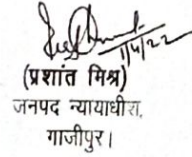 1/4/22
(प्रशांत मिश्र)
जनपद न्यायाधीश,
गाजीपुर।